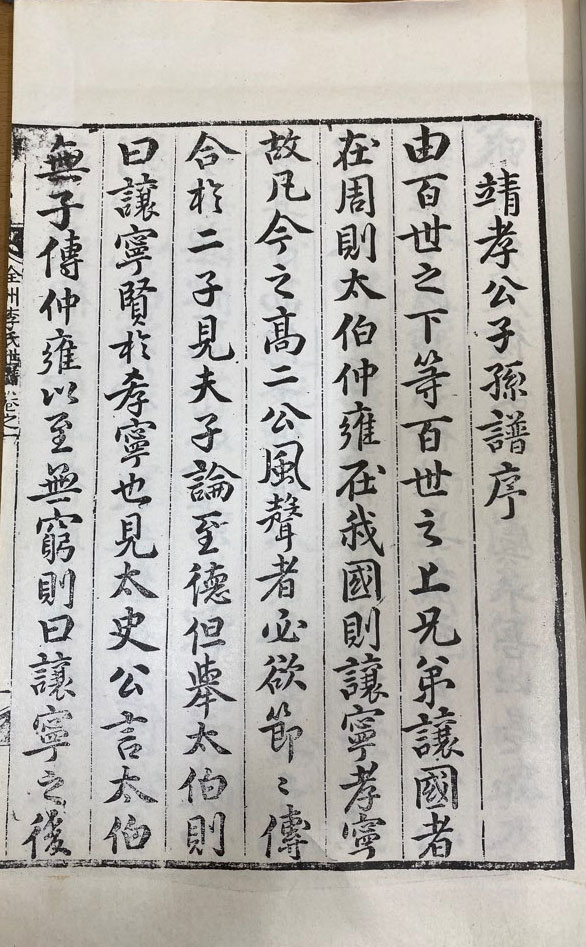 靖孝公子孫譜序
由百世之下等百世之上兄弟讓國者
在周則太伯仲雍在我國則讓寧孝寧
故凡今之高二公風聲者必欲節〻傅
合於二子見夫子論至德但擧太伯則
曰讓寧賢於孝寧也見太史公言太伯
無子傳仲雍以至無窮則曰讓寧之後
全州李氏世譜卷之一